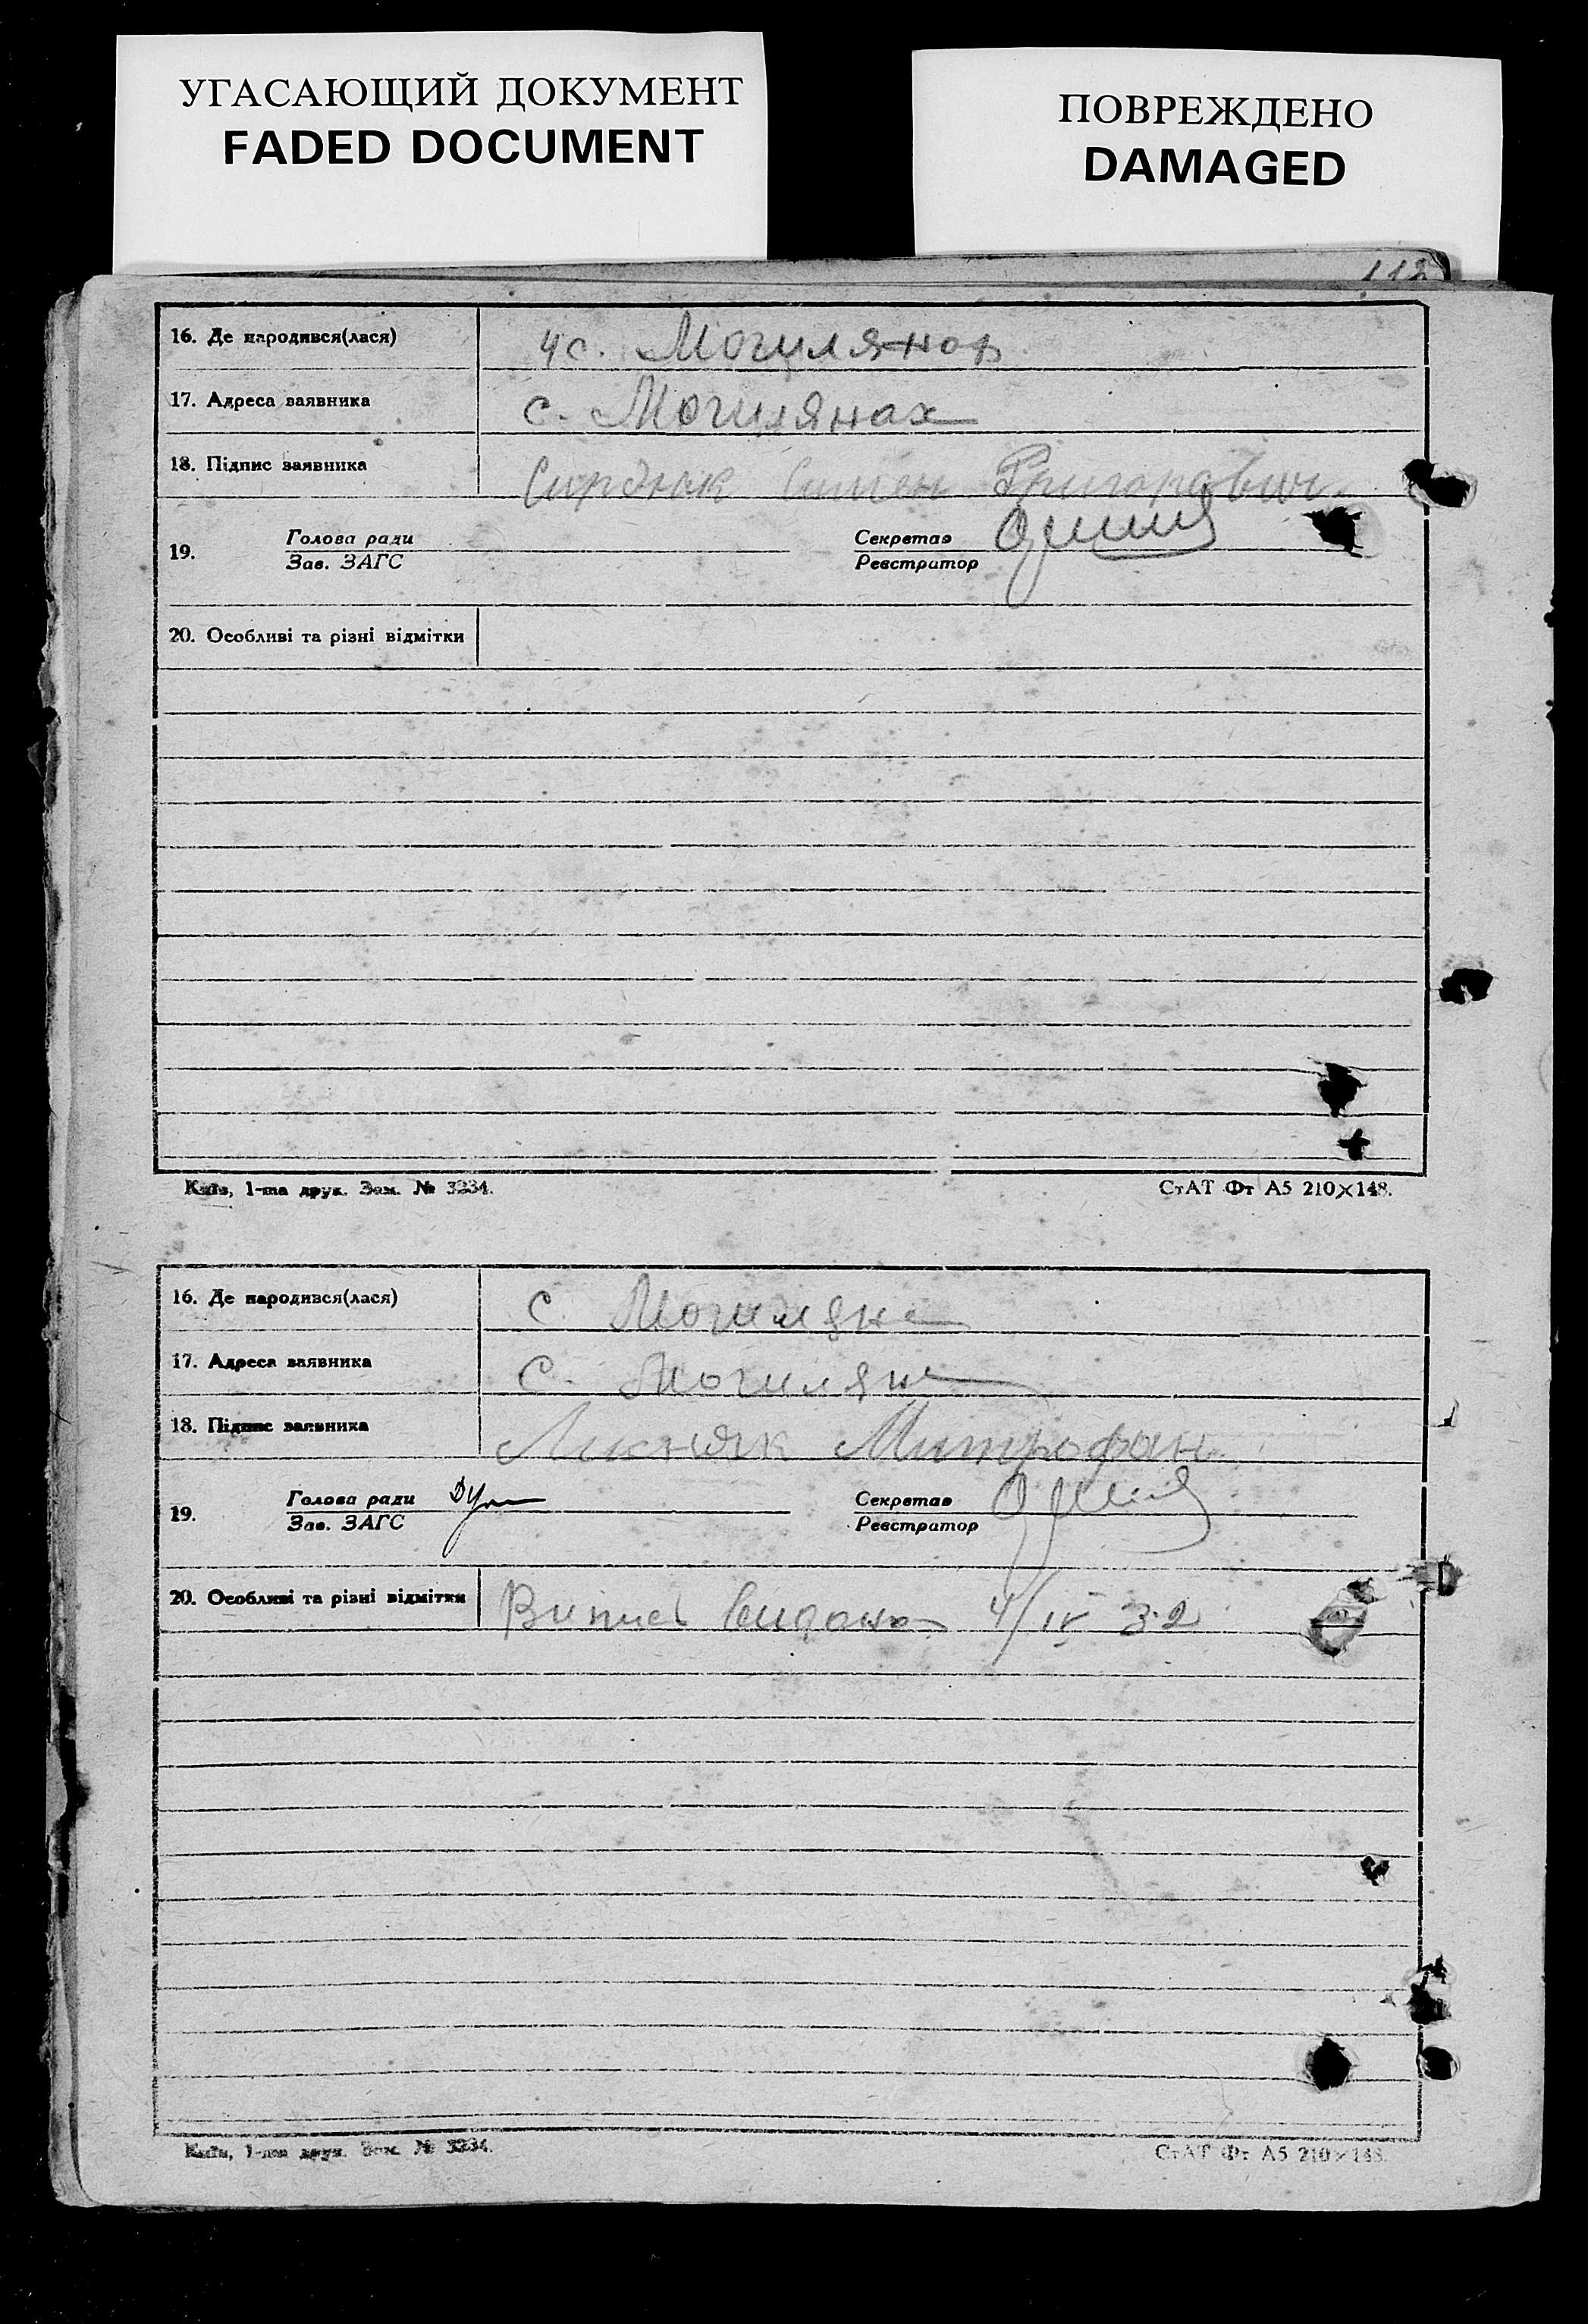 УГАСАЮЩИЙ ДОКУМЕНТ
FADED DOCUMENT
ПОВРЕЖДЕНО
DAMAGED
112
16. Де народився(лася) с. Могилянов
17. Адреса заявника с. Могилянах
18. Підпис заявника Сирдюк Симен Григоравич
19. Голова ради Секретар
Зав. ЗАГС Реєстратор
20. Особливі та різні відмітки
Київ, 1-ша друк. Зам. № 3234. СтАТ Фт А5 210×148.
16. Де народився(лася) с. Могиляне
17. Адреса заявника с. Могиляне
18. Підпис заявника Митрофан
19. Голова ради Секретар
Зав. ЗАГС Реєстратор
20. Особливі та різні відмітки Випись видана 4/IV 32
Київ, 1-ша друк. Зам. № 3234. СтАТ Фт А5 210×148.